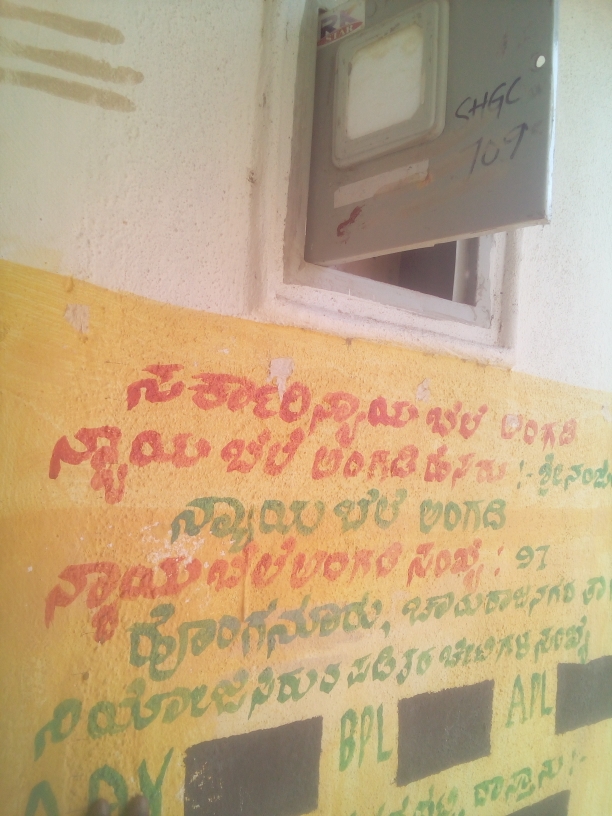 RK
STAR
CHGC
109
ಸರ್ಕಾರಿ ನ್ಯಾಯ ಬೆಲೆ ಅಂಗಡಿ
ನ್ಯಾಯ ಬೆಲೆ ಅಂಗಡಿ ಹೆಸರು :-
ನ್ಯಾಯ ಬೆಲೆ ಅಂಗಡಿ
ನ್ಯಾಯ ಬೆಲೆ ಅಂಗಡಿ ಸಂಖ್ಯೆ : 97
ಹೊಂಗನೂರು, ಚಾಮರಾಜನಗರ
ನಿಯೋಜಿಸಿರುವ ಪಡಿತರ ಚೀಟಿಗಳ ಸಂಖ್ಯೆ
BPL APL